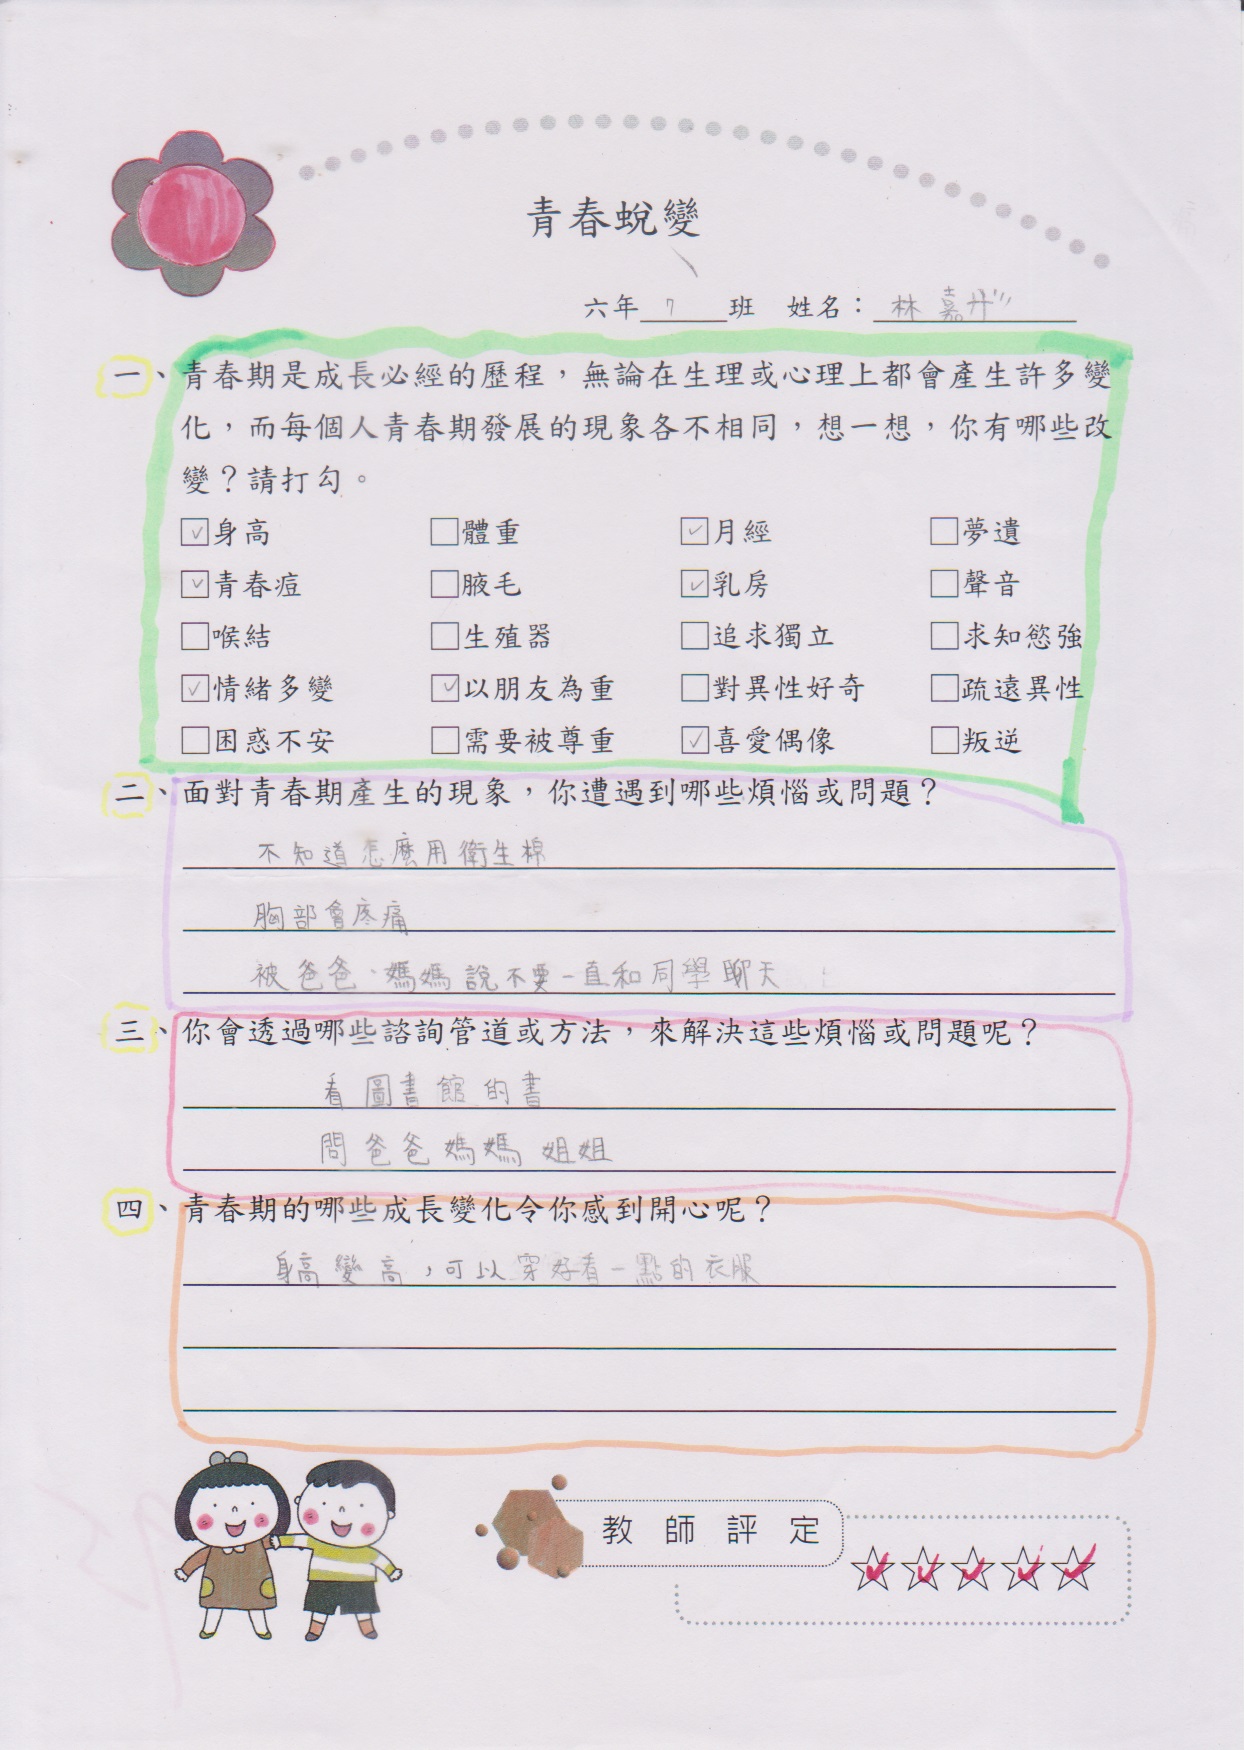 青春蛻變
六年 7 班 姓名：林嘉
一、青春期是成長必經的歷程，無論在生理或心理上都會產生許多變
化，而每個人青春期發展的現象各不相同，想一想，你有哪些改
變？請打勾。
☑身高 □體重 ☑月經 □夢遺
☑青春痘 □腋毛 ☑乳房 □聲音
□喉結 □生殖器 □追求獨立 □求知慾強
☑情緒多變 ☑以朋友為重 □對異性好奇 □疏遠異性
□困惑不安 □需要被尊重 ☑喜愛偶像 □叛逆
二、面對青春期產生的現象，你遭遇到哪些煩惱或問題？
不知道怎麼用衛生棉
胸部會疼痛
被爸爸、媽媽說不要一直和同學聊天
三、你會透過哪些諮詢管道或方法，來解決這些煩惱或問題呢？
看圖書館的書
問爸爸媽媽姐姐
四、青春期的哪些成長變化令你感到開心呢？
身高變高，可以穿好看一點的衣服
教師評定